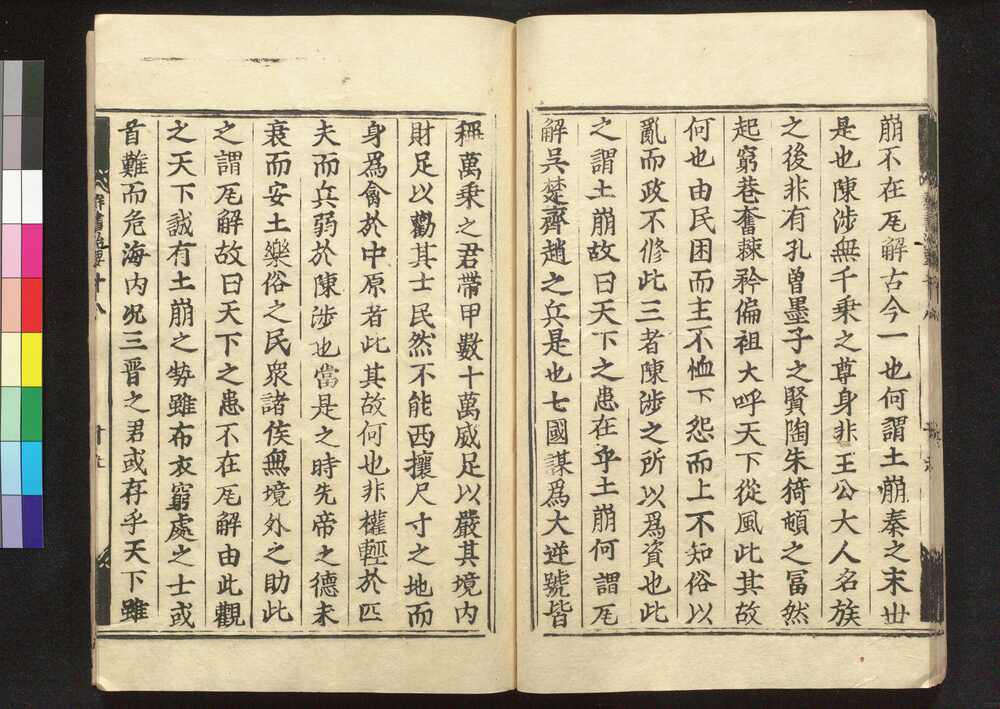 崩不在瓦解古今一也何謂土崩秦之末世
是也陳涉無千乗之尊身非王公大人名族
之後非有孔曾墨子之賢陶朱猗頓之冨然
起窮巷奮棘矜偏袒大呼天下從風此其故
何也由民困而主不恤下怨而上不知俗以
亂而政不修此三者陳涉之所以爲資也此
之謂土崩故曰天下之患在乎土崩何謂瓦
解吳楚齊趙之兵是也七國謀爲大逆號皆
稱萬乗之君帶甲數十萬威足以嚴其境内
財足以勸其士民然不能西攘尺寸之地而
身爲禽於中原者此其故何也非權輕於匹
夫而兵弱於陳涉也當是之時先帝之德未
衰而安土樂俗之民衆諸侯無境外之助此
之謂瓦解故曰天下之患不在瓦解由此觀
之天下誠有土崩之勢雖布衣窮處之士或
首難而危海内况三晉之君或存乎天下雖
群書治要十八